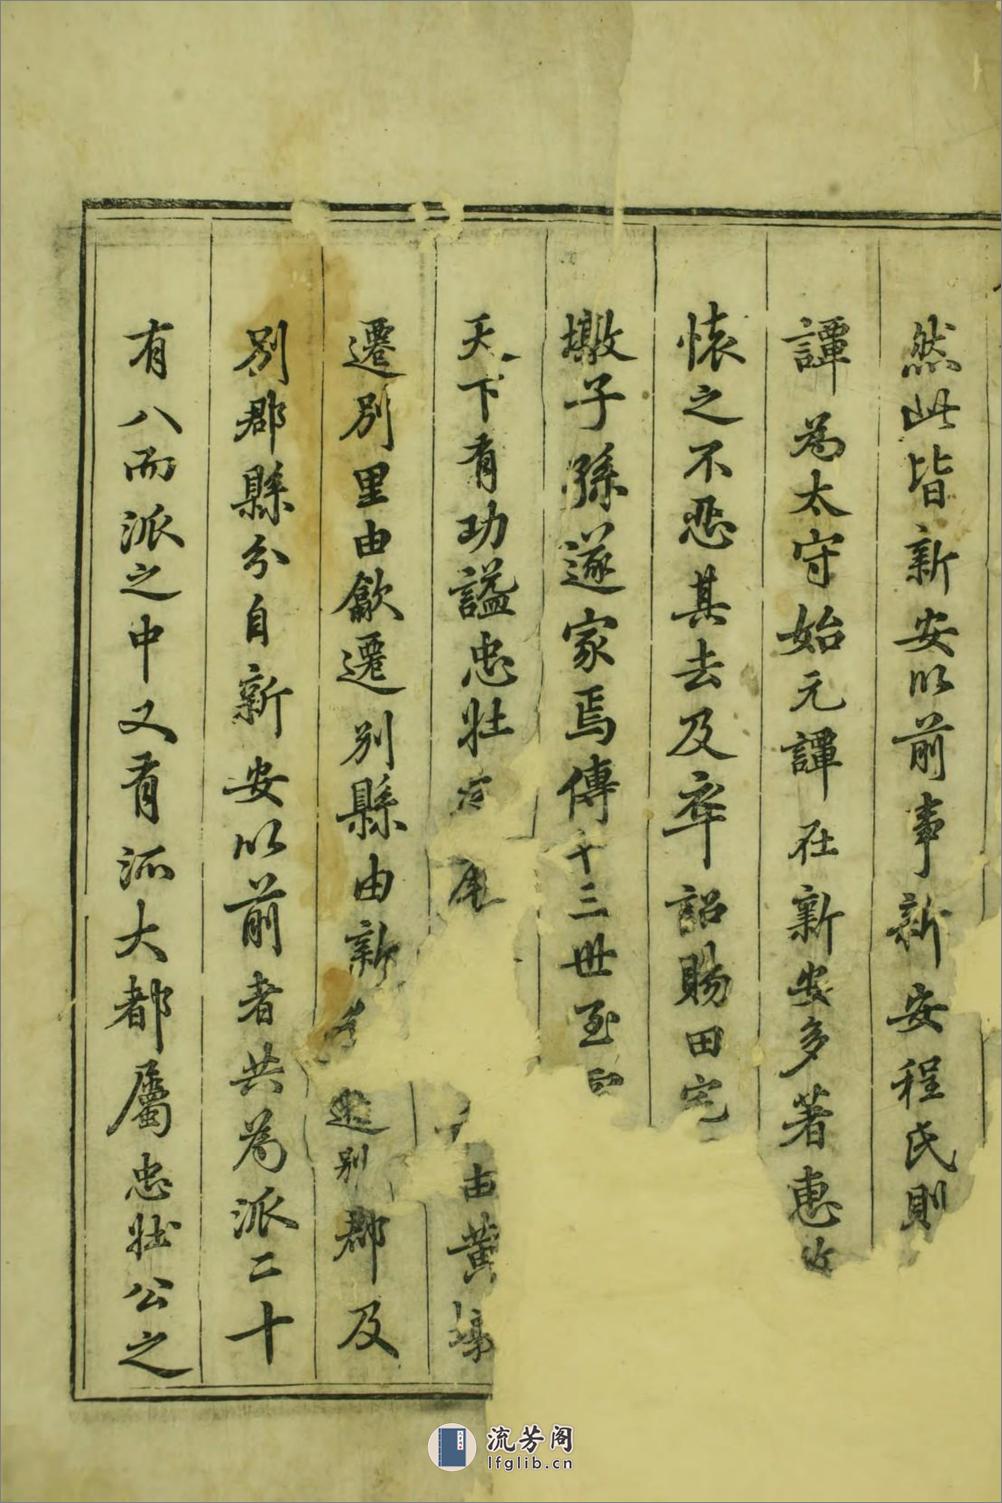 然此皆新安以前事新安程氏則
譚為太守始元譚在新安多著惠
懷之不忍其去及卒詔賜田宅
墩子孫遂家焉傳十三世至
天下有功謚忠壯
由黃墩
遷別里由歙遷別縣由新
遷別郡及
別郡縣分自新安以前者共為派二十
有八而派之中又有派大都屬忠壯公之
流芳阁
lfglib.cn